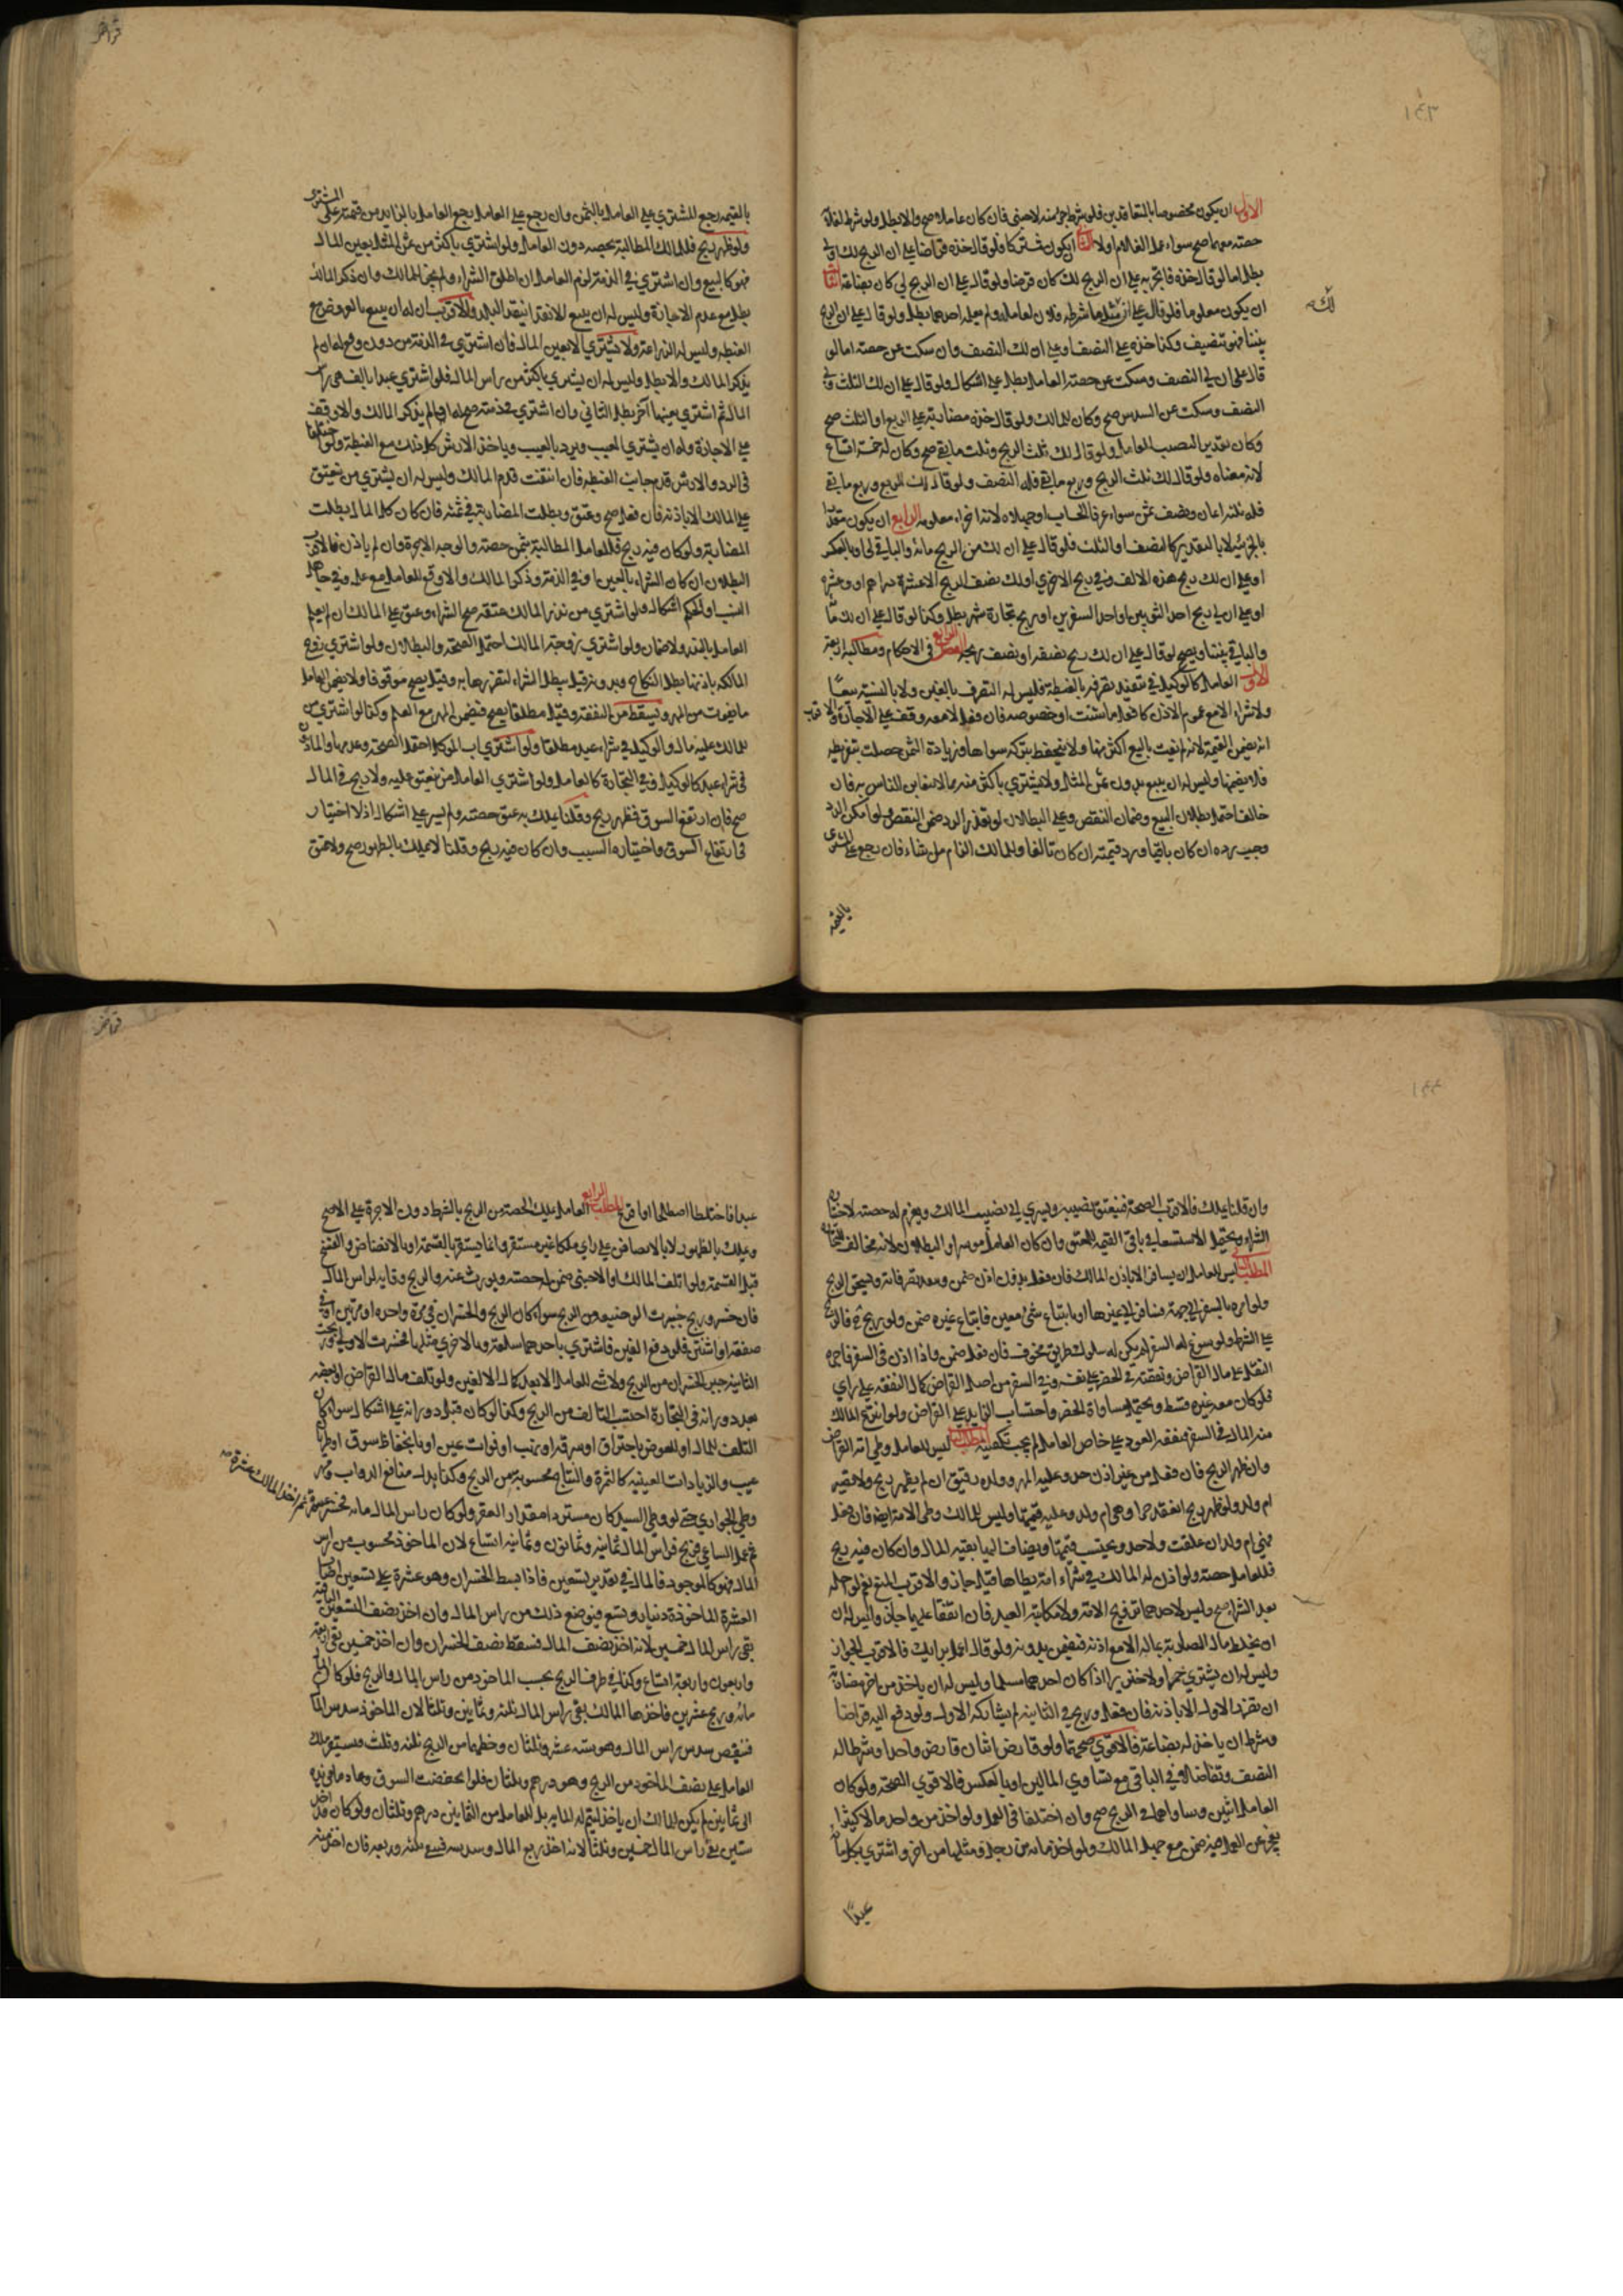 ١٤٣
الاول ان يكون مخصوصا بالمتعاقدين فلو شرط جزء منه لاجنبى فان كان عاملا صح والا بطل ولو شرط لغلامه
حصته معهما صح سواء عمل الغلام او لا الثانى ان يكون مشتركا فلو قال خذه قراضا على ان الربح لك او لى
بطل اما لو قال خذه فاتجر به على ان الربح لك كان قرضا ولو قال على ان الربح لى كان بضاعة الثالث
ان يكون معلوما فلو قال على ان لك مثل ما شرطه فلان لعامله ولم يعلمه احدهما بطل ولو قال على ان الربح
بيننا فهو تنصيف وكذا خذه على النصف او على ان لك النصف وان سكت عن حصته اما لو
قال على ان لى النصف وسكت عن حصة العامل بطل على اشكال ولو قال على ان لك الثلث ولى
النصف وسكت عن السدس صح وكان للمالك ولو قال خذه مضاربة على الربع او الثلث صح
وكان تقدير النصيب العامل ولو قال لك ثلث الربح وثلث ما بقى صح وكان له خمسة اتساع
لانه معناه ولو قال لك ثلث الربح وربع ما بقى فله النصف ولو قال لك الربع وربع ما بقى
فله ثلثة اثمان ونصف ثمن سواء عرفا الحساب او جهلاه لانه اجزاء معلومة الرابع ان يكون مقدرا
بالجزئية لا بالتقدير كالنصف او الثلث فلو قال على ان لك من الربح مائة والباقى لى او بالعكس
او على ان لك ربح هذه الالف ولى ربح الاخرى او لك نصف الربح الا عشرة دراهم او وعشرة
او على ان لى ربح احد الثوبين او احد السفرين او ربح تجارة شهر بطل وكذا لو قال على ان لك مائة
والباقى بيننا ويصح لو قال على ان لك ربح نصفه او نصف ربحه الفصل الرابع فى الاحكام ومطالبه اربعة
الاول العامل كالوكيل فى تنفيذ تصرفه بالغبطة فليس له التصرف بالغبن ولا بالنسيئة بيعا
ولا شراء الا مع عموم الاذن كافعل ما شئت او خصوصه فان فعل لا معه وقف على الاجازة والاقرب
انه يضمن القيمة لانه لم يفت بالبيع اكثر منها ولا يتحفظ بتركه سواها وزيادة الثمن حصلت بتفريطه
فلا يضمنها وليس له ان يبيع بدون ثمن المثل ولا يشترى باكثر منه مما لا يتغابن الناس به فان
خالف احتمل بطلان البيع وضمان النقص وعلى البطلان لو تعذر الرد ضمن النقص ولو امكن الرد
وجب رده ان كان باقيا ورد قيمته ان كان تالفا وللمالك الزام من شاء فان رجع على المشترى
بالقيمة
بالقيمة رجع المشترى على العامل بالثمن وان رجع على العامل رجع العامل بالزايد من قيمته على المشترى
ولو ظهر ربح فللمالك المطالبة بحصته دون العامل ولو اشترى باكثر من ثمن المثل بعين المال
فهو كالبيع وان اشترى فى الذمة لزم العامل ان اطلق الشراء ولم يجز المالك وان ذكر المالك
بطل مع عدم الاجازة وليس له ان يبيع الا نقدا بنقد البلد والاقرب ان له ان يبيع بالعروض مع
الغبطة وليس له الزراعة ولا يشترى الا بعين المال فان اشترى فى الذمة من دون وقع له ان لم
يذكر المالك والا بطل وليس له ان يشترى باكثر من راس المال فلو اشترى عبدا بالف هى راس
المال ثم اشترى بعينها آخر بطل الثانى وان اشترى فى ذمته صح له اذا لم يذكر المالك والا وقف
على الاجازة وله ان يشترى المعيب ويرد بالعيب وياخذ الارش كل ذلك مع الغبطة ولو اختلفا
فى الرد والارش قدم جانب الغبطة فان انتفت قدم المالك وليس له ان يشترى من ينعتق
على المالك الا باذنه فان فعل صح وعتق وبطلت المضاربة فى ثمنه فان كان كل المال بطلت
المضاربة ولو كان فيه ربح فللعامل المطالبة بثمن حصته والوجه الاجرة وان لم ياذن فالاقرب
البطلان ان كان الشراء بالعين او فى الذمة وذكر المالك والا وقع للعامل مع علمه وفى جاهل
النسب او الحكم اشكال ولو اشترى من نذر المالك عتقه صح الشراء وعتق على المالك ان لم يعلم
العامل بالنذر ولا ضمان ولو اشترى زوجة المالك احتمل الصحة والبطلان ولو اشترى زوج
المالكة باذنها بطل النكاح وبدونه قيل يبطل الشراء لتضررها به وقيل يصح موقوفا ولا يضمن العامل
ما يفوت من المهر ويسقط من النفقة وقيل مطلقا يصح فيضمن المهر مع العلم وكذا لو اشترى من
للمالك عليه مال والوكيل فى شراء عبد مطلقا ولو اشترى اب الموكل احتمل الصحة وعدمها والماذون
فى شراء عبد كالوكيل وفى التجارة كالعامل ولو اشترى العامل من ينعتق عليه ولا ربح فى المال
صح فان ارتفع السوق فظهر ربح وقلنا يملك به عتق حصته ولم يسر على اشكال اذ لا اختيار
فى ارتفاع السوق واختياره السبب وان كان فيه ربح وقلنا لا يملك بالظهور صح ولا عتق
١٤٤
وان قلنا يملك فالاقرب الصحة فينعتق نصيبه ويسرى الى نصيب المالك ويغرم له حصته لاختياره
الشراء ويحتمل الاستسعاء فى باقى القيمة للمعتق وان كان العامل موسرا والبطلان لانه مخالف للتجارة
المطلب الثانى ليس للعامل ان يسافر الا باذن المالك فان فعل بدون اذن ضمن وبعد تصرفاته ويستحق الربح
ولو امره بالسفر الى جهة فسافر الى غيرها او بابتياع شئ معين فابتاع غيره ضمن ولو ربح فالربح
على الشرط ولو سوغ له السفر لم يكن له سلوك طريق مخوف فان فعل ضمن واذا اذن فى السفر فاجرة
النقل على مال القراض ونفقته فى الحضر على نفسه وفى السفر من اصل القراض كمال النفقة على راى
فلو كان معه غيره قسط ويحتمل مساواة الحضر واحتساب الزايد على القراض ولو انتزع المالك
منه المال فى السفر فنفقة العود على خاص العامل لم يجب تكفينه المطلب الثالث ليس للعامل وطى امة القراض
وان ظهر الربح فان فعل من غير اذن حد وعليه المهر وولده رقيق ان لم يظهر ربح ولا تصير
ام ولد ولو ظهر ربح انعقد حرا وهى ام ولد وعليه قيمتها وليس للمالك وطى الامة ايضا فان فعل
فهى ام ولد ان علقت ولا حد ويحتسب قيمتها ويضاف اليها بقية المال وان كان فيه ربح
فللعامل حصته ولو اذن له المالك فى شراء امة يطاها قيل جاز والاقرب المنع نعم لو احله
بعد الشراء صح وليس لاحدهما تزويج الامة ولا مكاتبة العبد فان اتفقا عليهما جاز وليس له ان
ان يخلط مال المضاربة بماله الا مع اذنه فيضمن بدونه ولو قال اعمل برايك فالاقرب الجواز
وليس له ان يشترى خمرا ولا خنزيرا اذا كان احدهما مسلما وليس له ان ياخذ من اخر مضاربة
ان تضرر الاول الا باذنه فان فعل وربح فى الثانية لم يشاركه الاول ولو دفع اليه قراضا
وشرط ان ياخذ له بضاعة فالاقوى صحتهما ولو قارض اثنان قارض واحدا وشرطا له
النصف وتفاضلا فى الباقى مع تساوى المالين او بالعكس فالاقوى الصحة ولو كان
العامل اثنين وساواهما فى الربح صح وان اختلفا فى العمل ولو اخذ من واحد مالا كثيرا
يعجز عن العمل فيه ضمن مع جهل المالك ولو اخذ مائة من رجل ومثلها من اخر واشترى بكل مائة
عبدا
عبدا فاختلطا اصطلحا او اقرع المطلب الرابع العامل يملك الحصة من الربح بالشرط دون الاجرة على الاصح
ويملك بالظهور لا بالانضاض على راى ملكا غير مستقر وانما يستقر بالقسمة او بالانضاض والفسخ
قبل القسمة ولو اتلف المالك او الاجنبى ضمن له حصته ويورث عنه والربح وقاية لراس المال
فان خسر وربح جبرت الوضيعة من الربح سواء كان الربح والخسران فى مرة واحدة او مرتين او فى
صفقة او اثنتين فلو دفع الفين فاشترى باحدهما سلعة وبالاخرى مثلها فخسرت الاولى وربحت
الثانية جبر الخسران من الربح ولا شئ للعامل الا بعد كمال الالفين ولو تلف مال القراض او بعضه
بعد دورانه فى التجارة احتسب التالف من الربح وكذا لو كان قبل دورانه على اشكال سواء كان
التلف للمال او للعوض باحتراق او سرقة او نهب او فوات عين او بانخفاض سوق او طريان
عيب والزيادات العينية كالثمرة والنتاج محسوبة من الربح وكذا بدل منافع الدواب ومهر
وطى الجوارى حتى لو وطى السيد كان مستردا مقدار العقر ولو كان راس المال مائة فخسر عشرة ثم اخذ المالك عشرة
ثم عمل الساعى فربح فراس المال ثمانية وثمانون وثمانية اتساع لان الماخوذ محسوب من راس
المال فهو كالموجود فالمال فى تقدير تسعين فاذا بسط الخسران وهو عشرة على تسعين اصاب
العشرة الماخوذة دينار وتسع فيوضع ذلك من راس المال وان اخذ نصف التسعين الباقية
بقى راس المال خمسين لانه اخذ نصف المال فسقط نصف الخسران وان اخذ خمسين بقى اربعة
واربعون واربعة اتساع وكذلك فى طرف الربح يحسب الماخوذ من راس المال والربح فلو كان المال
مائة وربح عشرين فاخذها المالك بقى راس المال ثلثة وثمانين وثلثا لان الماخوذ سدس المال
فنقص سدس راس المال وهو ستة عشر وثلثان وحظها من الربح ثلثة وثلث ويستقر ملك
العامل على نصف الماخوذ من الربح وهو درهم وثلثان فلو انخفضت السوق وعاد ما فى يده
الى ثمانين لم يكن للمالك ان ياخذه ليتم له المائة بل للعامل من الثمانين درهم وثلثان ولو كان قد اخذ
ستين بقى راس المال خمسين وثلثا لانه اخذ ربع المال وسدسه فبقى ثلثه وربعه فان اخذ منه